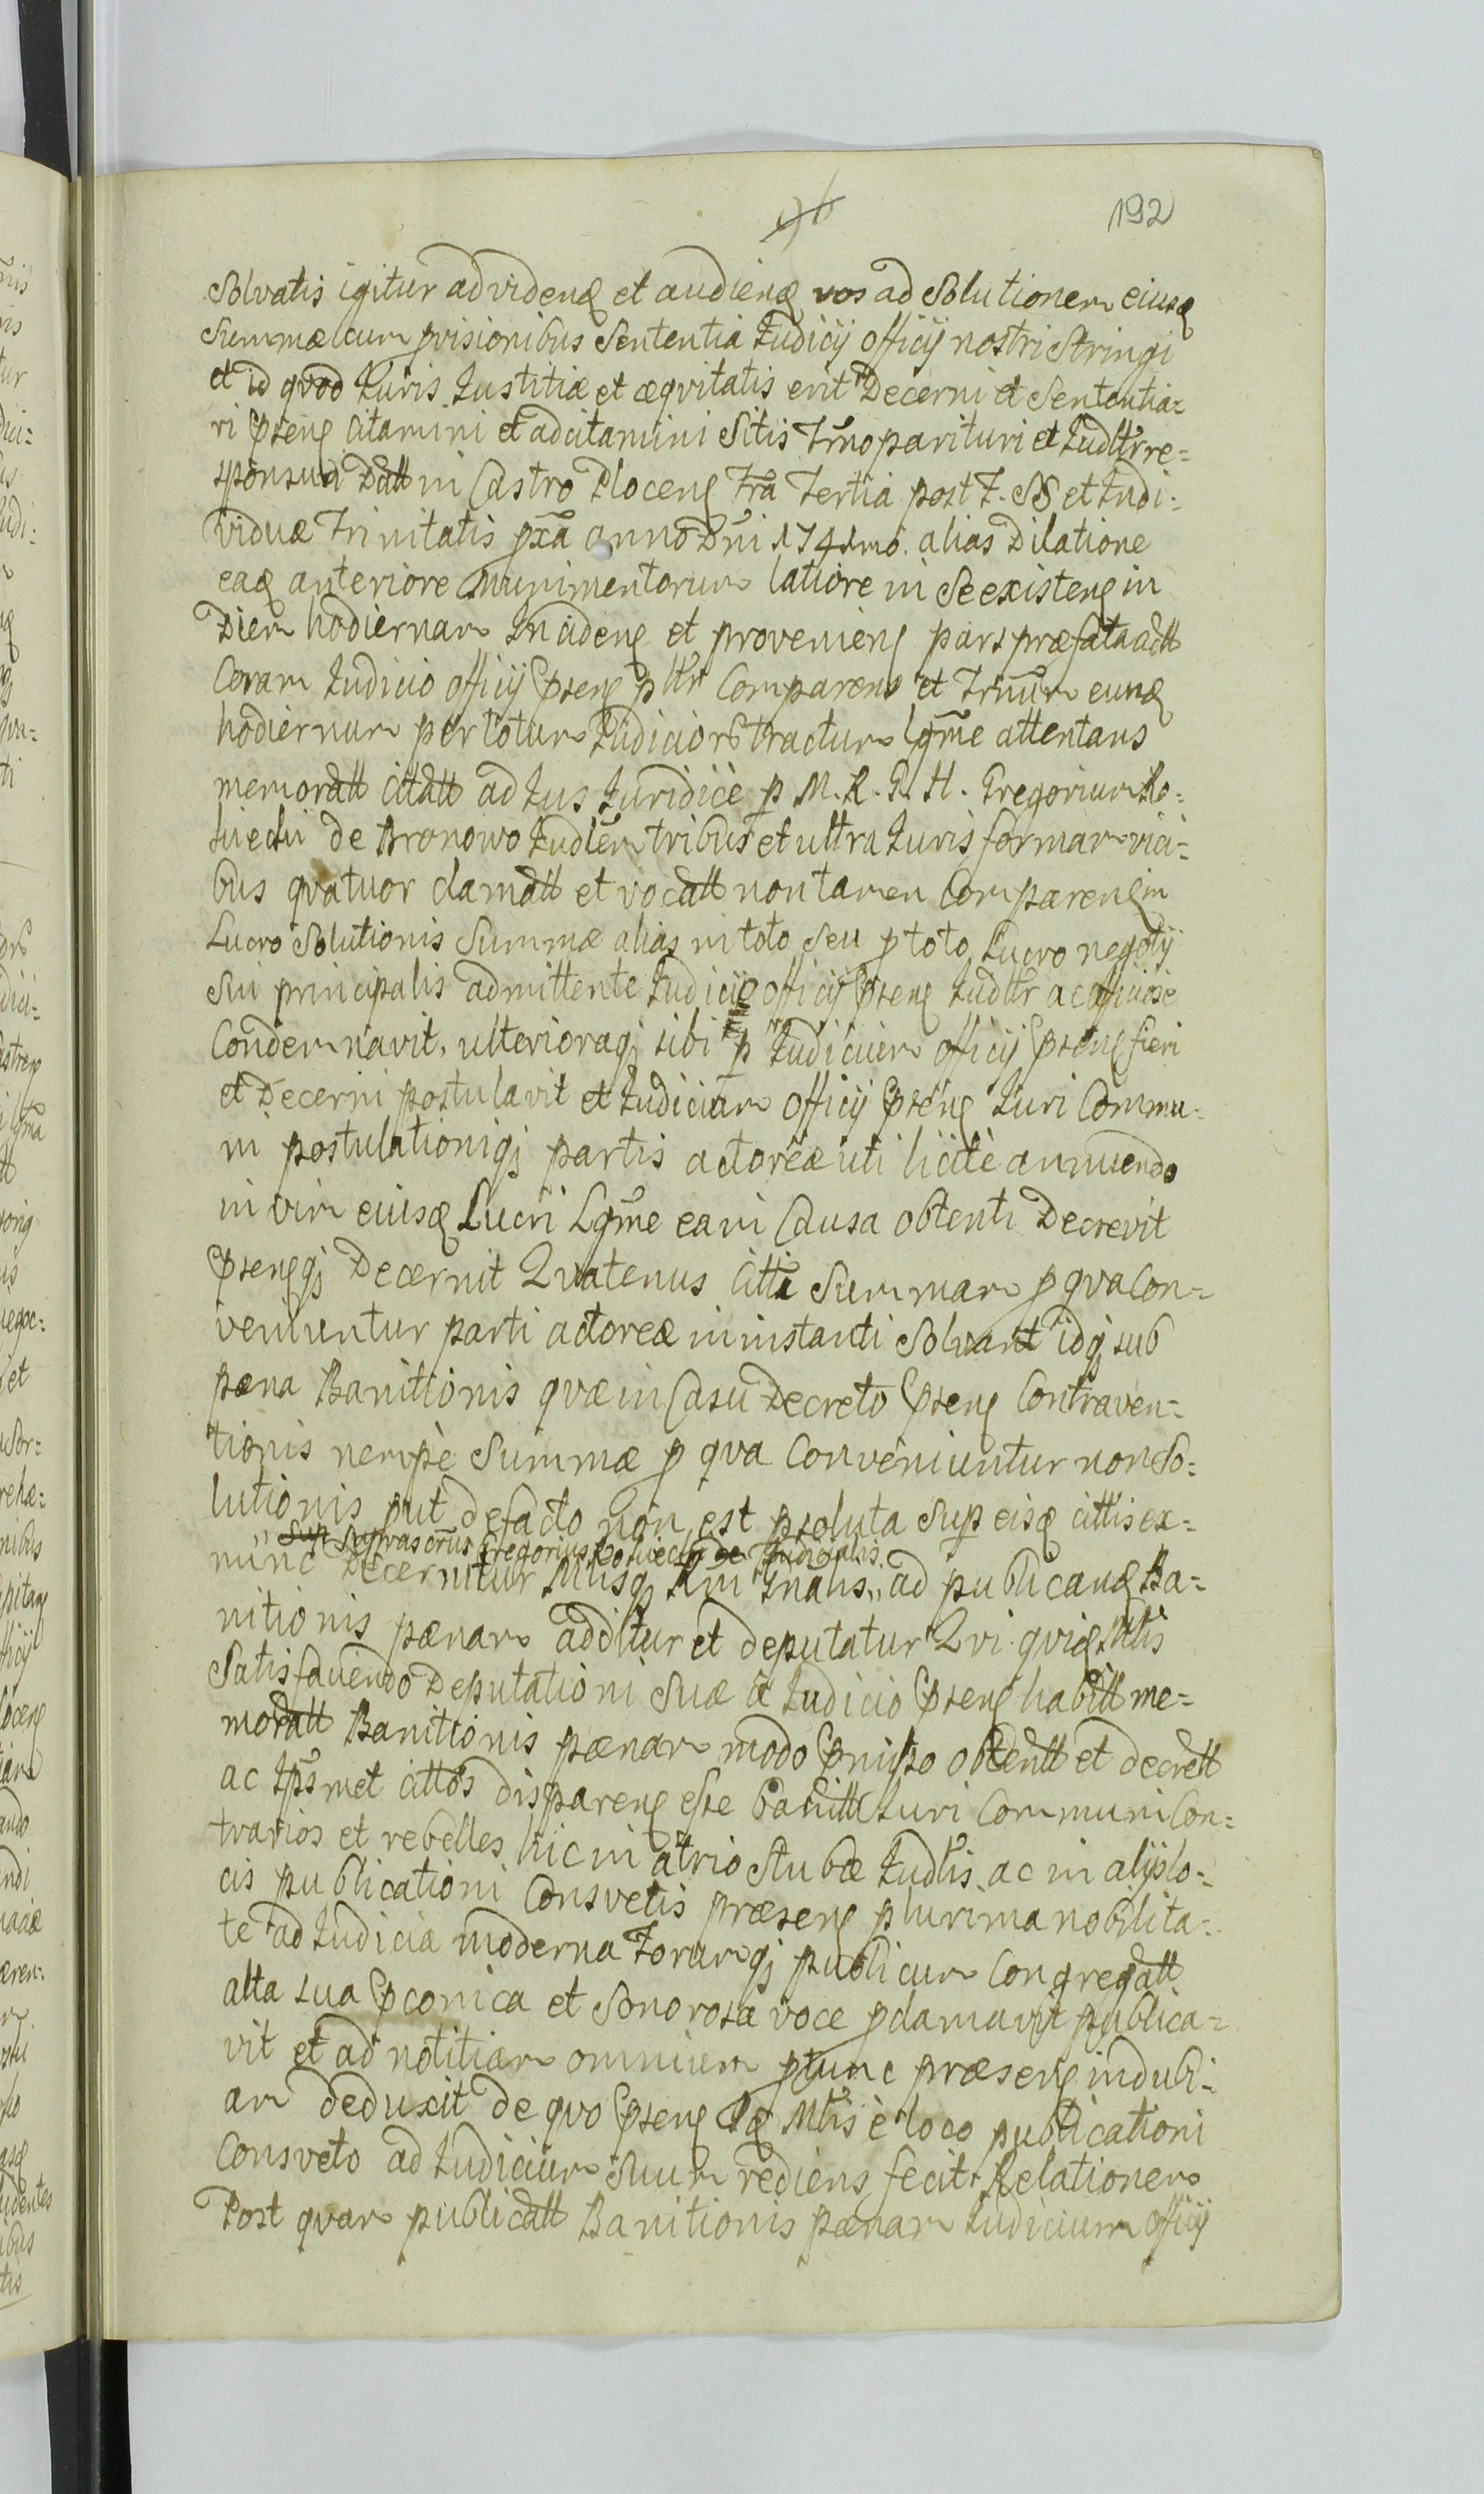 96
192
Solvatis igitur ad videnđ et audienđ vos ad Solutionem eiusđ
Summæ cum pvisionibus Sententia Iudicij officij nostri Stringi
et id quod Iuris Iustitiæ et æqvitatis erit Decerni et Sententia=
ri Psenę Citamini et adcitamini Sitis Trmo parituri et Iudltr re=
sponsuri Datt in Castro Plocenę Fra Tertia post F. SS et Indi=
viduæ Trinitatis pxa anno Dni 1741mo. alias Dilatione
eađ anteriore munimentorum latiore in Se existenę in
Diem hodiernam Incidenę et provenienę pars præfata actt
Coram Iudicio officij Psenę pltr Comparens et Trnum eunđ
hodiernum per totum Iudiciorū tractum lgme attentans
memoratt Citatt ad Ius Iuridice p M. R. G. H. Gregorium Ko=
de Bronowo Iudlem tribus et ultra Iuris formam vici=
bus qvatuor clamatt et vocatt non tamen Comparenę in
Lucro Solutionis Summæ alias in toto seu p toto Lucro negotij
Sui principalis admittente Iudicio officij Psenę Iudltr ac officiose
Condemnavit, ulterioraqj sibi p Iudicium officij Psenę fieri
et Decerni postulavit et Iudicium officij Psenę Iuri Commu=
ni postulationiqj partis actoreæ uti licite annuendo
in vim eiusđ Lucri Lgme ea in Causa obtenti Decrevit
Psenęqj Decernit Qvatenus Citti Summam p qva Con=
veniuntur parti actoreæ in instanti Solvant idqj sub
pæna Banitionis qvæ in Casu Decreto Psenę Contraven=
tionis nempè Summæ p qva Conveniuntur non So=
lutionis put de facto non est psoluta Sup eisđ cittis ex=
Sup
nunc Decernitur Mtisqj Rni Gnalis,, ad publicanđ Ba=
nitionis pænam additur et deputatur Qvi qviđ Mtis
Satisfaciendo Deputationi Suæ à Iudicio Psenę habitt me=
moratt Banitionis pænam modo Pmisso obtentt et decrett
ac Ipsmet cittos disparenę esse banitt Iuri Communi Con=
trarios et rebelles hic in atrio Stubæ Iudlis ac in alijs lo=
cis publicationi Consvetis præsenę plurima nobilita=
te ad Iudicia moderna Forumqj publicum Congregatt
alta sua Pconica et Sonorosa voce pclamavit publica=
vit et ad notitiam omnium ptunc præsenę indubi=
am deduxit de qvo Psenę Iđ Mtis è loco publicationi
Consveto ad Iudicium Suum rediens fecit Relationem
Post qvam publicatt Banitionis pænam Iudicium officij